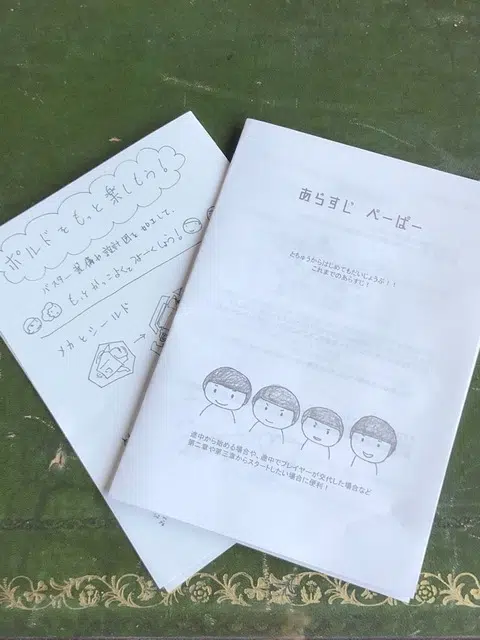 ボルドをもっと楽しもう!
バスター、装備や設計図を
もっとかっこよく
しよう!
メカとシールド
あらすじ ぺーぱー
とちゅうからはじめてもだいじょうぶ!!
これまでのあらすじ！
途中から始める場合や、途中でプレイヤーが交代した場合など
第二章や第三章からスタートしたい場合に便利!